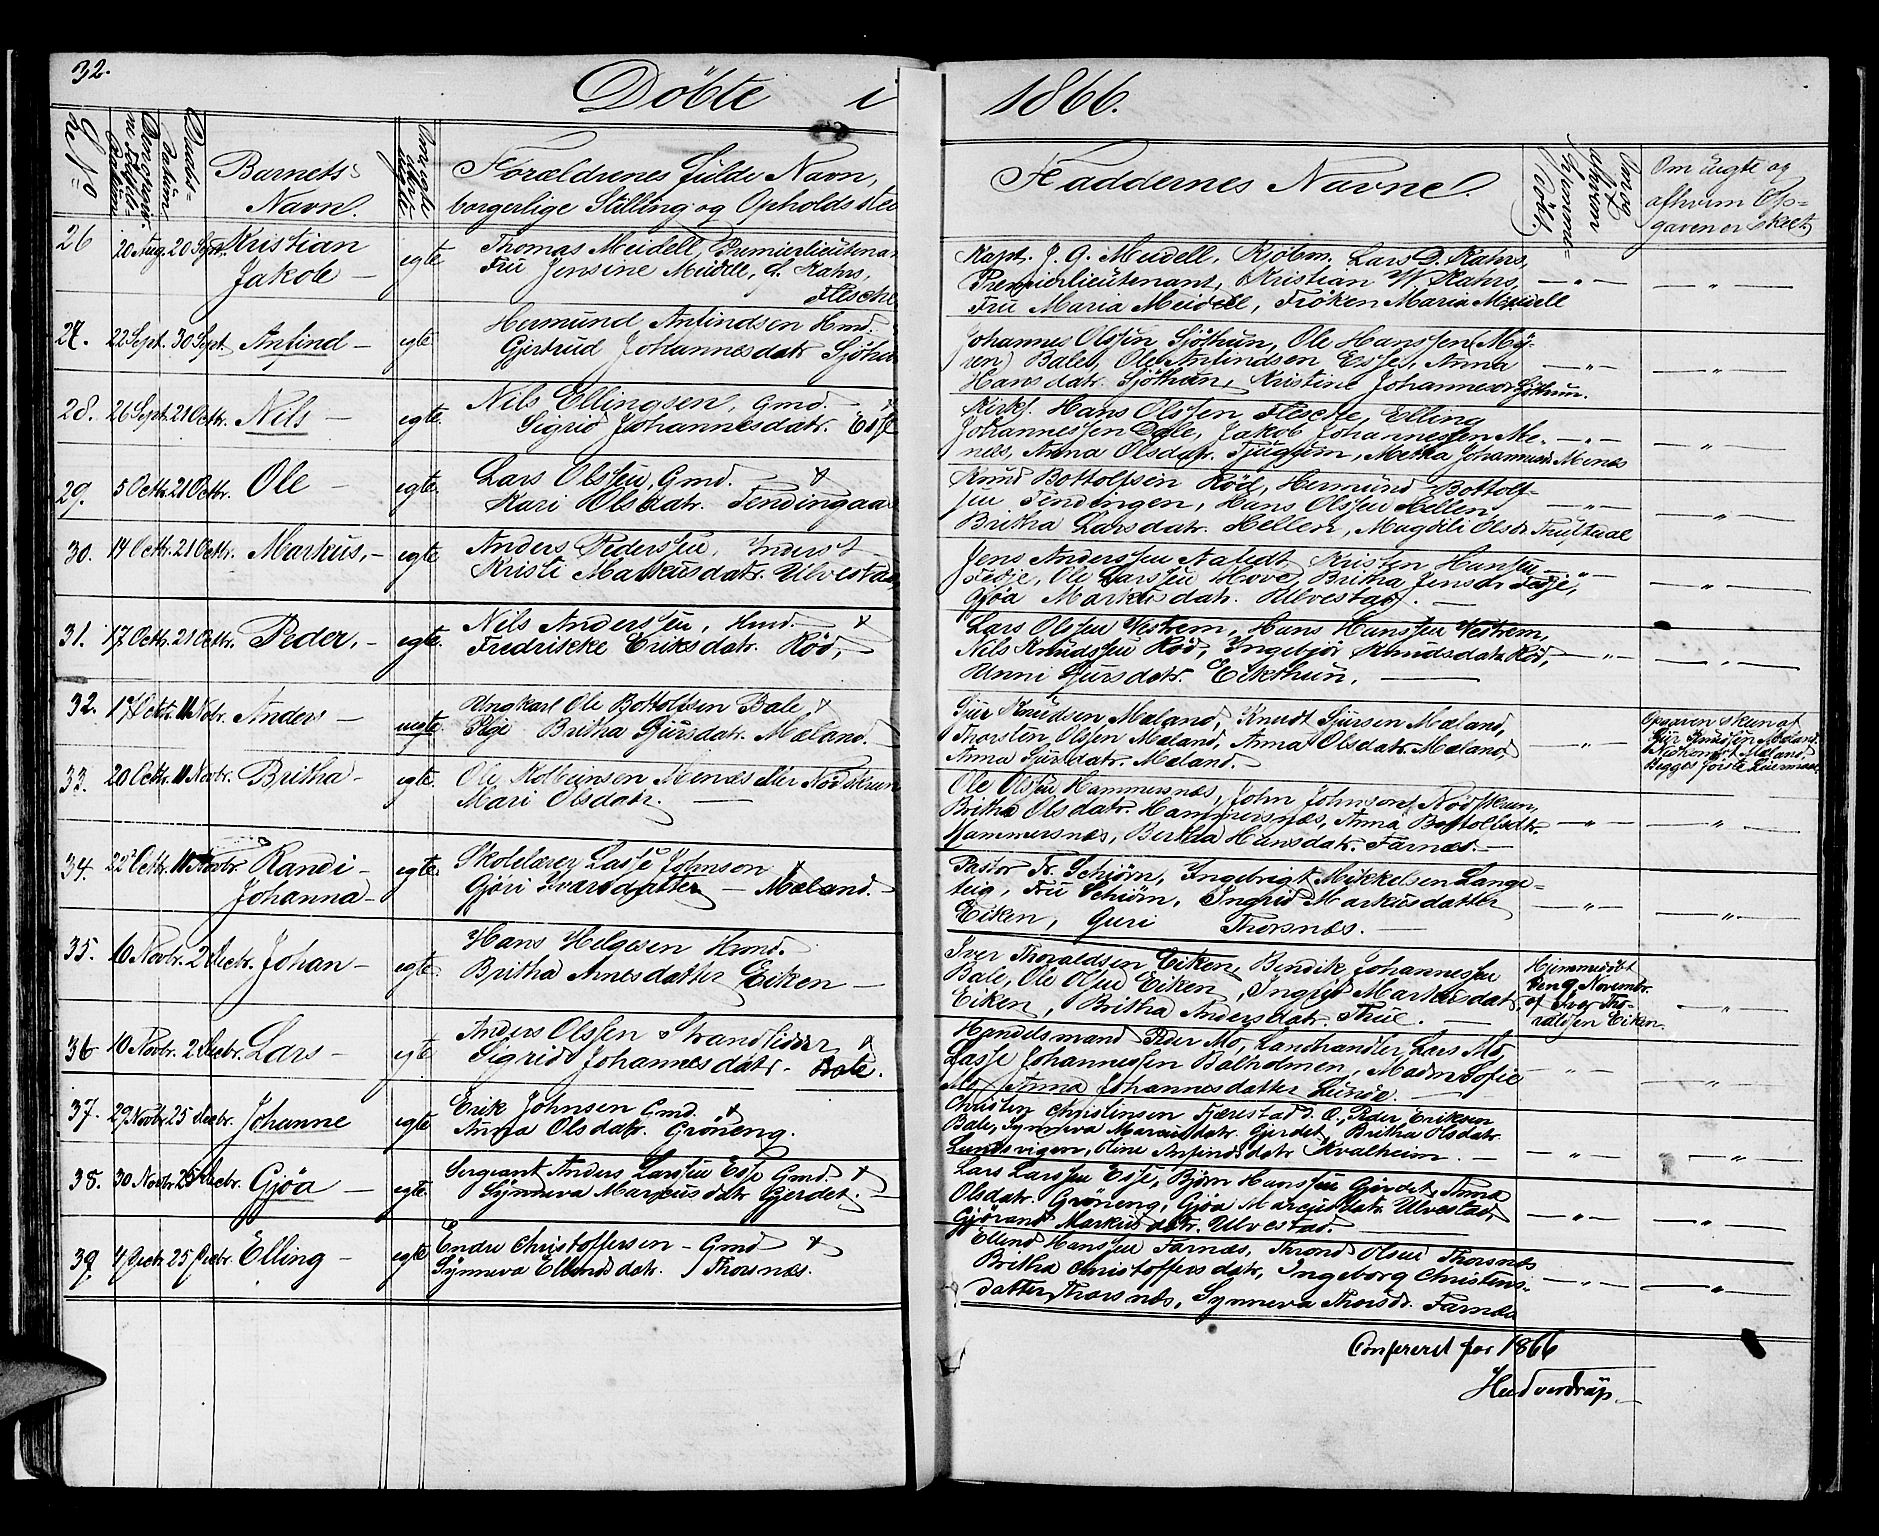 32.
Döbte i
1866.
Barnets
Navn.
Forældrenes fulde Navn,
borgerlige Stilling og Opholdssted
Faddernes Navne.
Om uægte og
afhvem Op-
gaven er skeet
26
20 Aug. 20 Sept. Kristian
Jakob —
egte
Thomas Meidell, Premierlieutenant
Fru Jensine Meidell, f. Kahrs,
Flesche
Kapt. J. G. Meidell, Kjöbm. Lars D. Kahrs,
Premierlieutenant, Kristian W. Kahrs,
Fru Maria Meidell, Fröken Maria Meidell
— " —
— " —
27.
22 Sept. 30 Sept. Anfind —
egte
Hermund Anfindsen Hmd.
Gjertrud Johannesdatr Sjöthun
Johannes Olsen Sjöthun, Ole Hanssen My-
ren, Balen, Ole Anfindsen Esse, Anna
Hansdatr. Sjöthun, Kristine Johannesdr Sjöthun.
— " —
— " —
28.
26 Sept. 21 Octr. Nils —
egte.
Nils Ellingsen, Gmd.
Sigrid Johannesdatr. Esse
Kirks. Hans Olssen Flesche, Elling
Johannessen Dale, Jakob Johannessen Me-
nes, Anna Olsdatr. Tjugum, Metha Johannesd. Menes
— " —
— " —
29.
5 Octr. 21 Octr. Ole —
egte.
Lars Olssen, Gmd.
Kari Olsdatr. Fendingaas
Knud Bottolfsen Röd, Hermund Bottolf-
sen Fendingen, Hans Olssen Hellen,
Britha Larsdatr. Hellen, Magdeli Olsdr.
— " —
— " —
30.
14 Octr. 21 Octr. Markus, —
egte
Anders Pederssen, Inderst
Kristi Markusdatr. Ulvestad,
Jens Anderssen Nabedt, Kristen Hansen
Fedje, Ole Larssen Hove, Britha Jensdr Fedje,
Gjöa Markusdatr. Ulvestad. —
— " —
— " —
31.
17 Octr. 21 Octr. Peder, —
egte.
Nils Anderssen, Hmd.
Fredrikke Eriksdatr. Röd,
Lars Olssen Vestrem, Hans Hanssen Vestrem,
Nils Knudssen Röd, Ingebjör Knudsdatr. Röd,
Unni Sjursdatr. Eikthun. —
— " —
— " —
32.
17 Octr. 11 Novbr. Anders —
uegte
Ungkarl Ole Bottolfsen Bale
Pige Britha Sjursdatr. Mæland.
Sjur Knudsen Mæland, Knudt Sjursen Mæland,
Thorsten Olssen Mæland, Anna Olsdatr. Mæland,
Anna Sjursdatr. Mæland.
— " —
Opgaven skeen af
Sjur Knudsen Mæland.
Mæland.
Begges förste Leiermaal
33.
20 Octr. 11 Novbr. Britha —
egte.
Ole Kolbensen Menæs eller Nødskrun
Mari Olsdatr. —
Ole Olssen Hammersnæs, John Johnsen Nødskrun,
Britha Olsdatr. Hammersnæs, Anna Bottolfsdtr.
Hammersnæs, Bertha Hansdatr. Farnæs. —
— " —
— " —
34.
22 Octr. 11 Novbr. Randi —
Johanna —
egte.
Skolelærer Lasse Johnson
Gjöri Ivarsdatter — Mæland. —
Pastor Fr. Schiörn, Ingebrigt Mikkelsen Lange-
teig, Fru Schiörn, Ingrid Markusdatter
Eiken, Guri Thorsnæs. —
— " —
— " —
35.
6 Novbr. 2 Decbr. Johan —
egte.
Hans Helgesen Hmd.
Britha Arnesdatter Eiken —
Iver Thoraldsen Eiken, Bendik Johannessen
Bale, Ole Olsen Eiken, Ingrid Markusdatr.
Eiken, Britha Andersdatr. Thue. —
Hjemmedöbt
den 9. Novembr.
af Iver Tho-
raldsen Eiken
— " —
36
10 Novbr. 2 Decbr. Lars —
egte.
Anders Olssen Strandlidder
Sigrid Johannesdatr. — Bale.
Handelsmand Peder Mo, Landhandler Lars Mo,
Lasse Johannessen Balholmen, Madm Sofie
Mo, Anna Johannesdatter Lunde. —
— " —
— " —
37.
29 Novbr. 25 Decbr. Johanne
egte
Erik Johnsen Gmd.
Anna Olsdatr. Gröneng.
Christen Christensen Fjærestad, Peder Eriksen
Bale, Synneva Marcusdatr. Gjerdet, Britha Olsdatr.
Lundsvigen, Oline Anfindsdatr Kvalheim. —
— " —
— " —
38.
30 Novbr. 25 Decbr. Gjöa —
egte.
Sergeant Anders Larssen Esse Gmd.
Synneva Marcusdatr. Gjerdet. —
Lars Larssen Esse, Björn Hanssen Gjerdet, Anna
Olsdatr. Gröneng, Gjöa Marcusdatr. Ulvestad,
Gjörand Markusdatr. Ulvestad. —
— " —
— " —
39.
4 Decbr. 25 Decbr. Elling —
egte.
Endre Christoffersen — Gmd
Synneva Ellendsdatr. Thorsnæs.
Ellend Hanssen Farnæs, Thrond Olsen Thorsnæs
Britha Christoffersdatr, Ingeborg Christens-
datter Thorsnæs, Synneva Thorsdr. Farnæs
— " —
— " —
Confereret for 1866